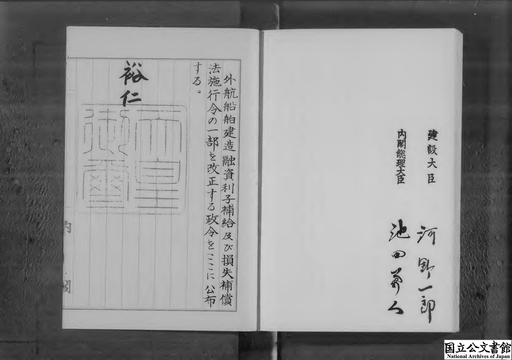 建設大臣
河野一郎
内閣総理大臣
池田勇人
外航船舶建造融資利子補給及び損失補償
法施行令の一部を改正する政令をここに公布
する。
裕仁
天皇
御璽
内閣
国立公文書館
National Archives of Japan